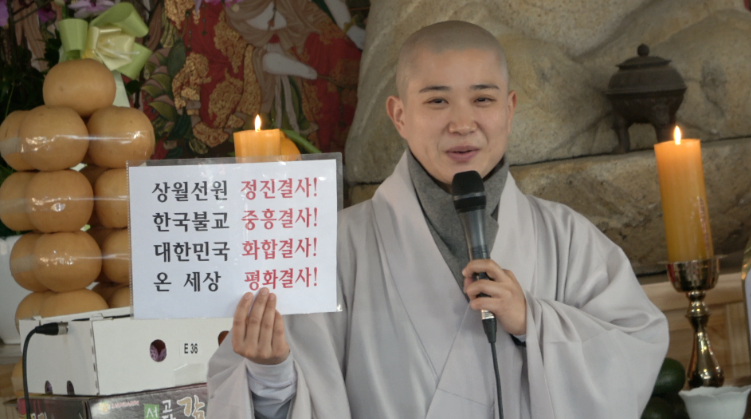 상월선원 정진결사!
한국불교 중흥결사!
대한민국 화합결사!
온 세상 평화결사!
E 36